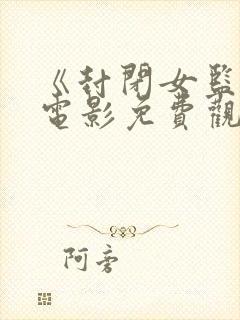 《封閉女監
電影免費觀
阿旁